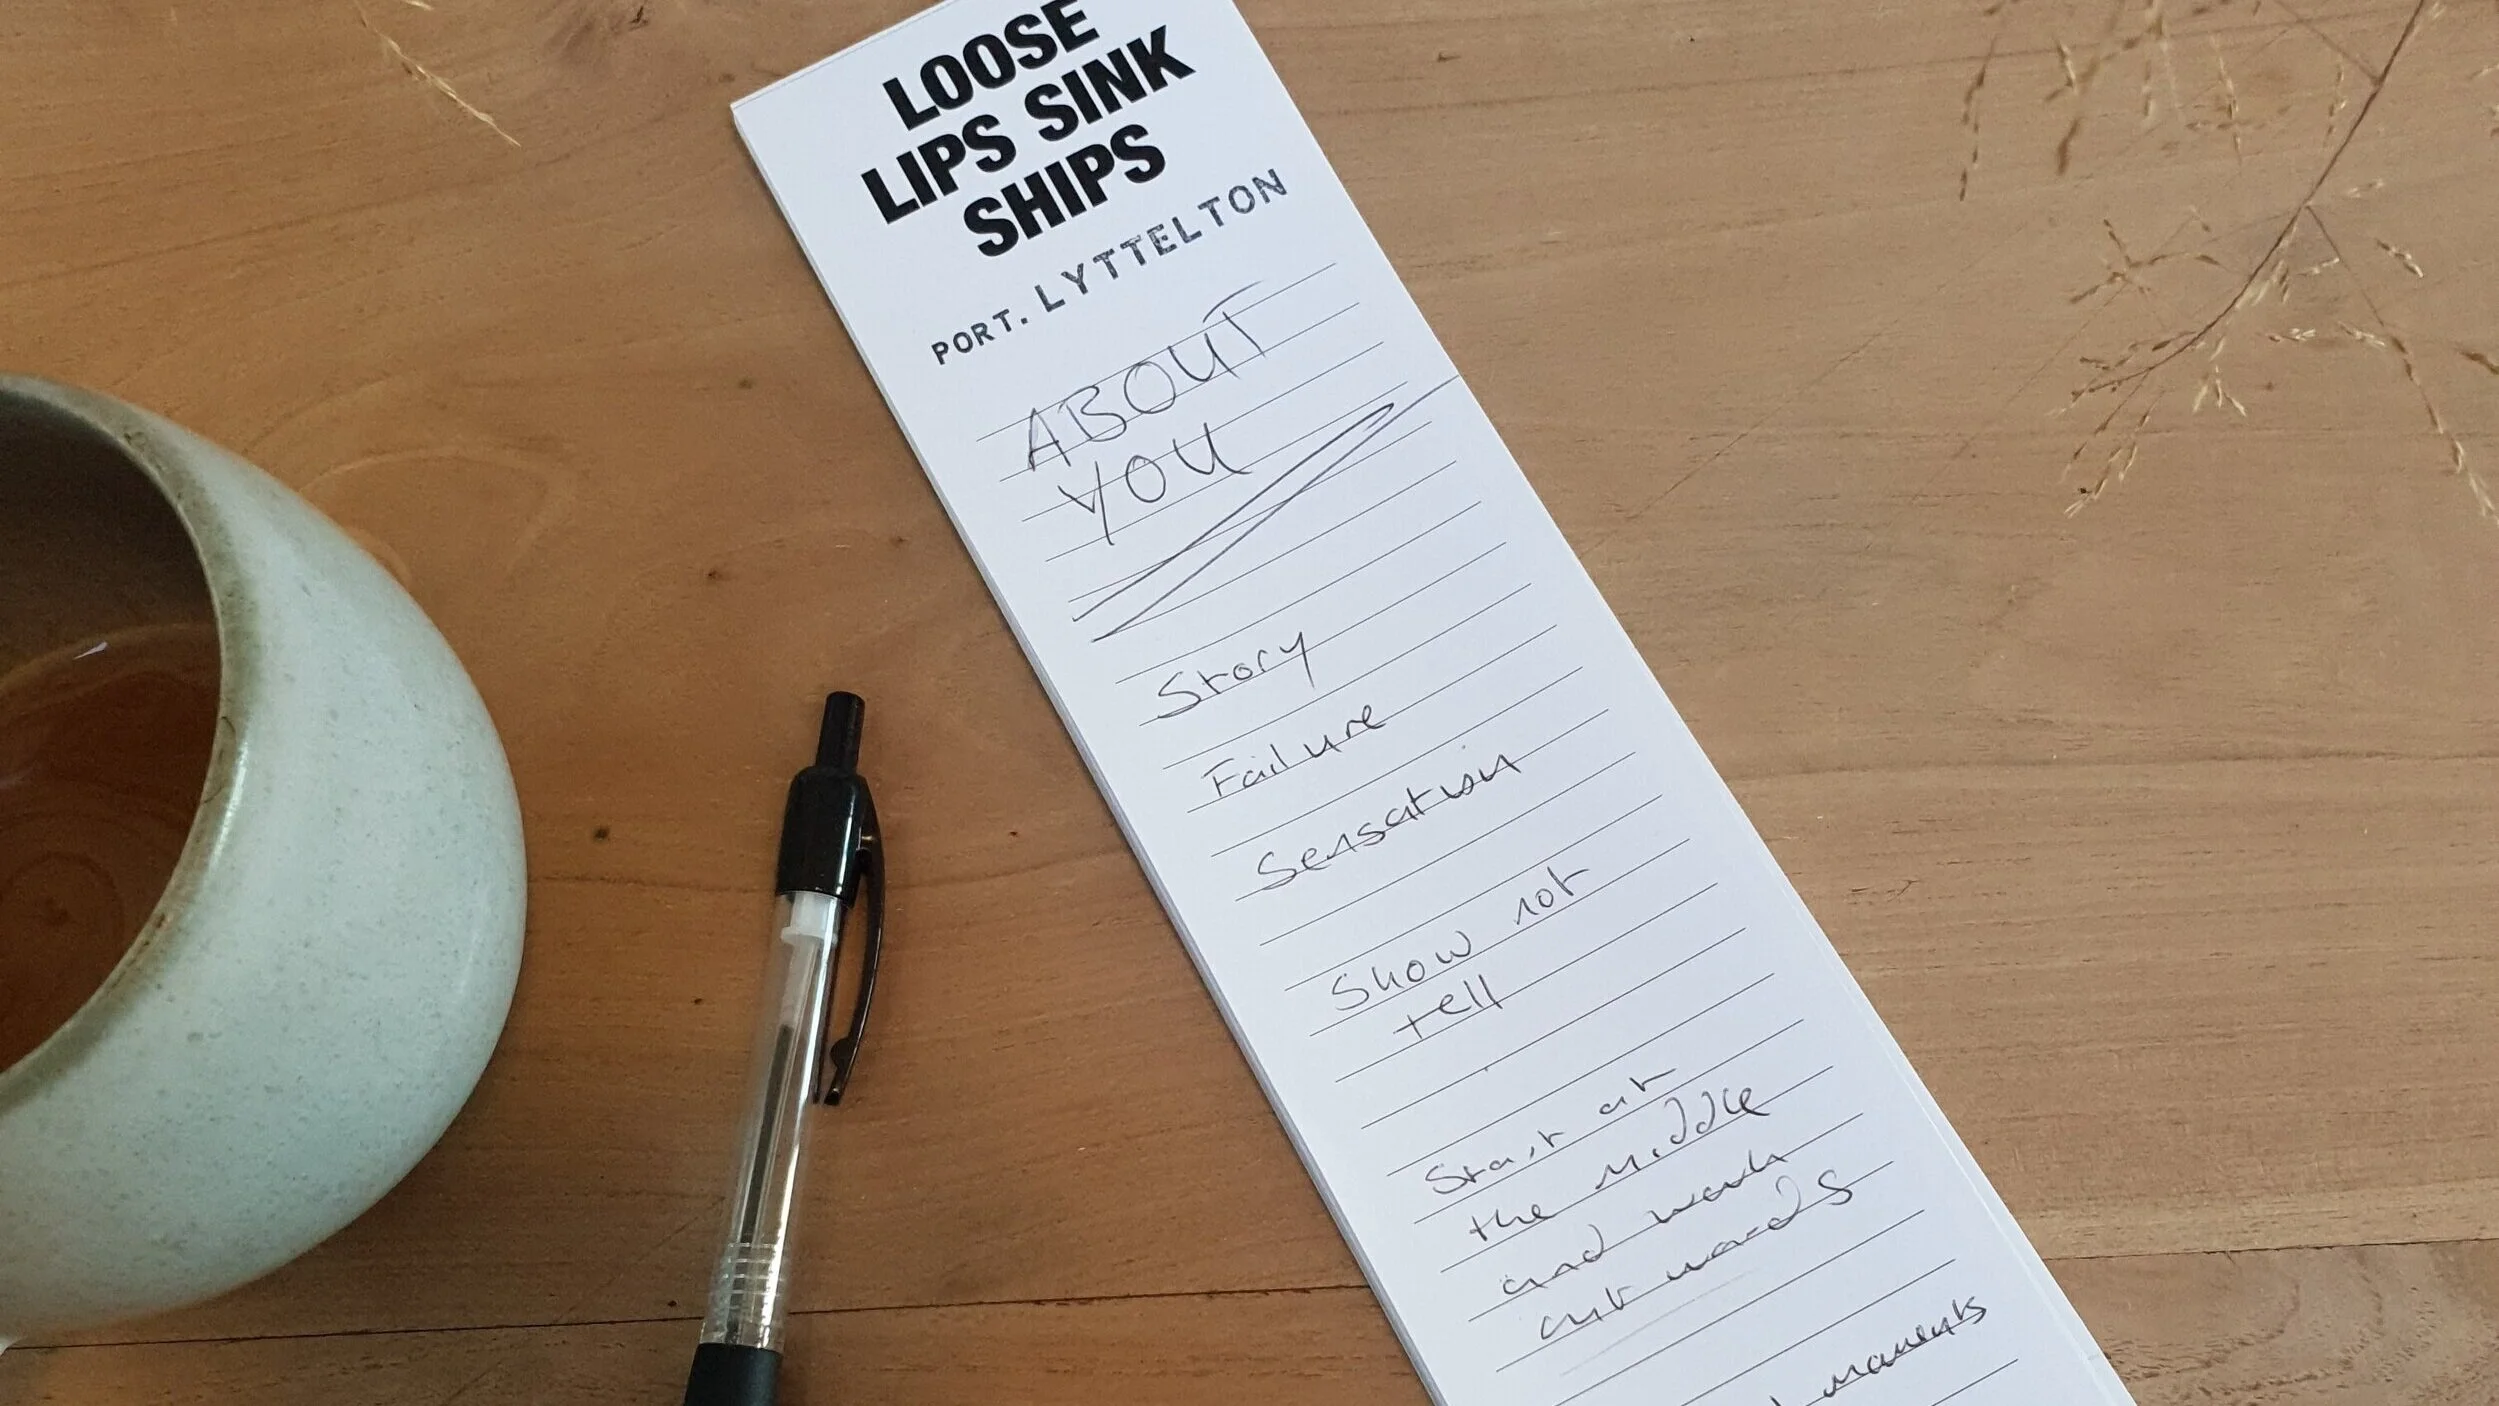 LOOSE
LIPS SINK
SHIPS
PORT. LYTTELTON
ABOUT
YOU
Story
Failure
Sensation
Show not
tell
Start at
the middle
and work
outwards
moments